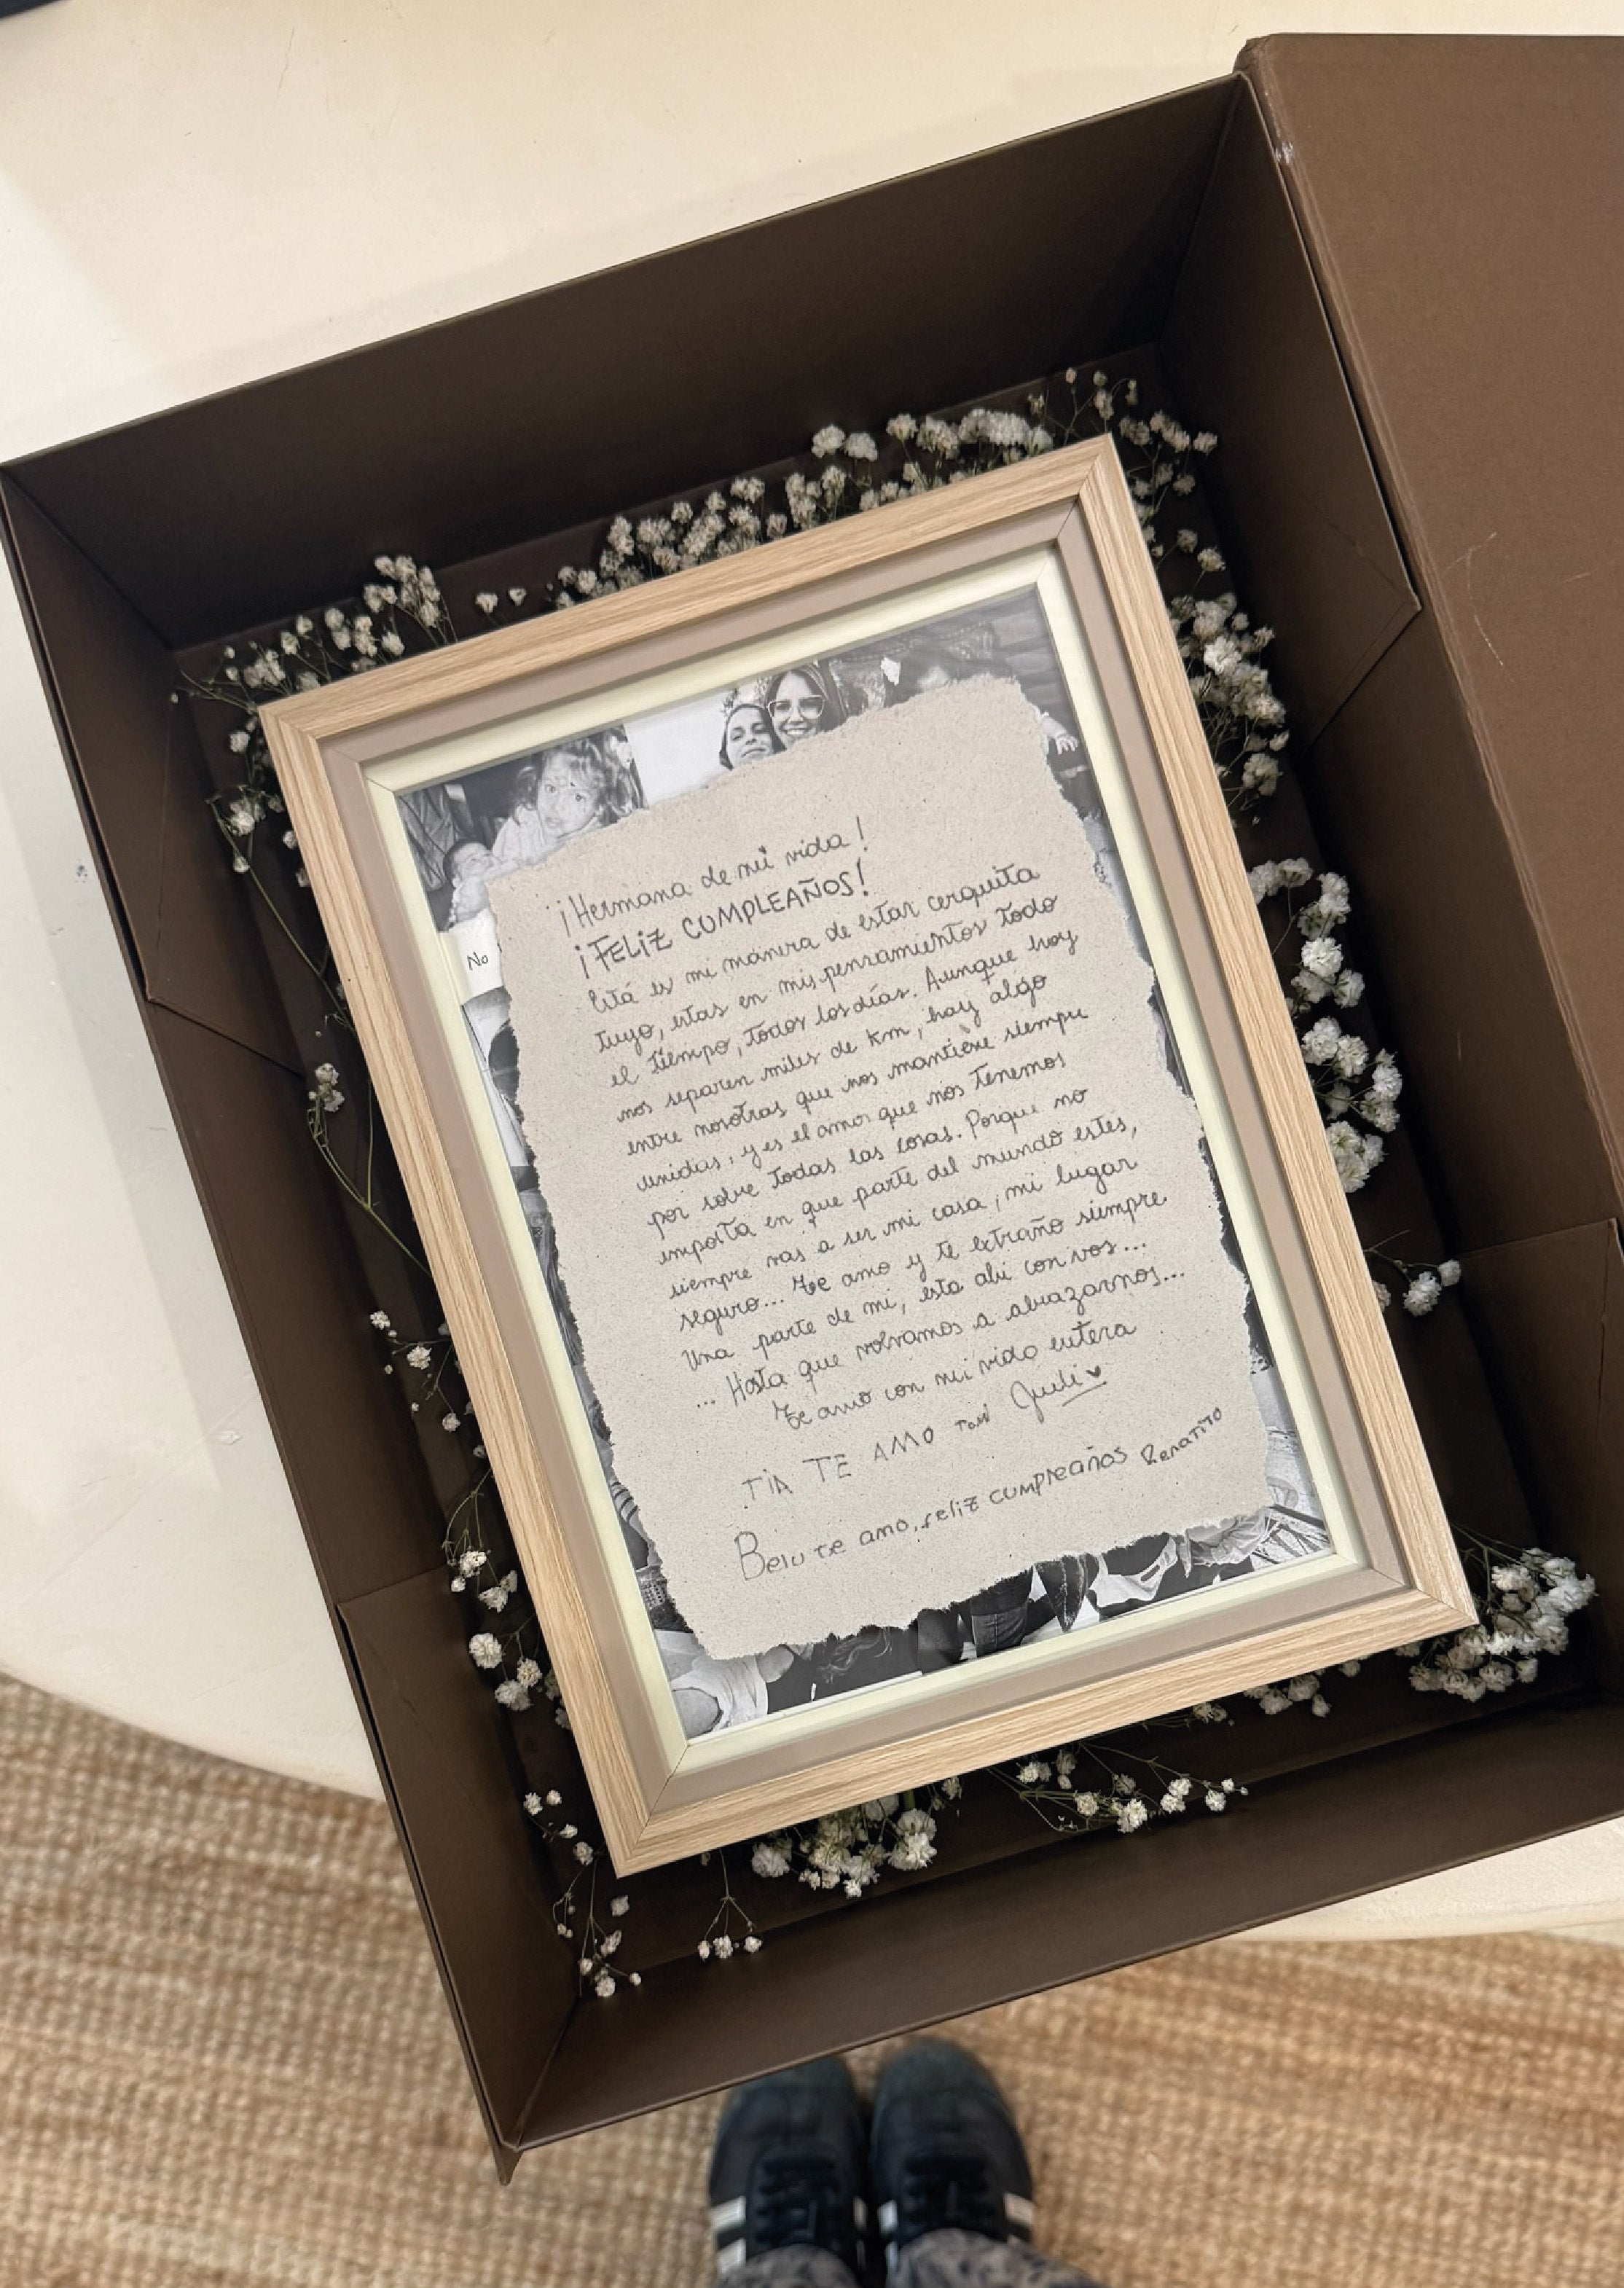 ¡Hermana de mi vida!
¡FELIZ CUMPLEAÑOS!
Está es mi mánera de estar cerquita
tuyo, estas en mis pensamientos todo
el tiempo, todos los días. Aunque hoy
nos separen miles de km, hay algo
entre nosotras que nos mantiene siempre
unidas, y es el amor que nos tenemos
por sobre todas las cosas. Porque no
importa en que parte del mundo estes,
siempre vas a ser mi casa, mi lugar
seguro... Te amo y te extraño siempre
Una parte de mi, esta ahi con vos...
... Hasta que volvamos a abrazarnos...
Te amo con mi vida entera
Juli
TIA TE AMO
Belu te amo, feliz cumpleaños Renatito
No